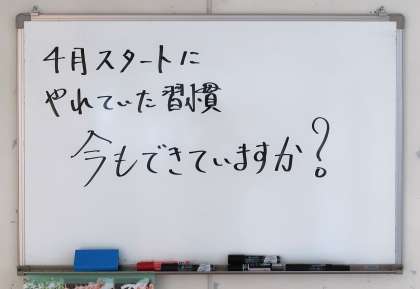 4月スタートに
やれていた習慣
今もできていますか?